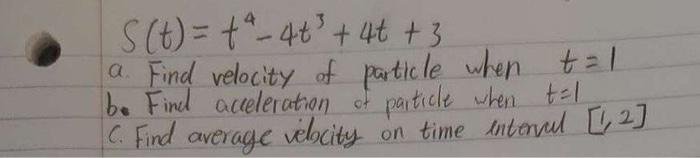 S(t) = t⁴ - 4t³ + 4t + 3
a. Find velocity of particle when t = 1
b. Find acceleration of particle when t=1
C. Find average velocity on time interval [1, 2]